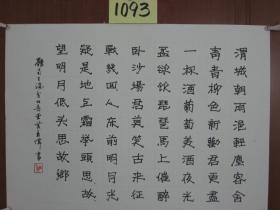 1093
渭城朝雨浥輕塵客舍
青青柳色新勸君更盡
一杯酒葡萄美酒夜光
杯欲飲琵琶馬上催醉
卧沙場君莫笑古來征
戰幾回人床前明月光
疑是地上霜舉頭
望明月低头思故鄉